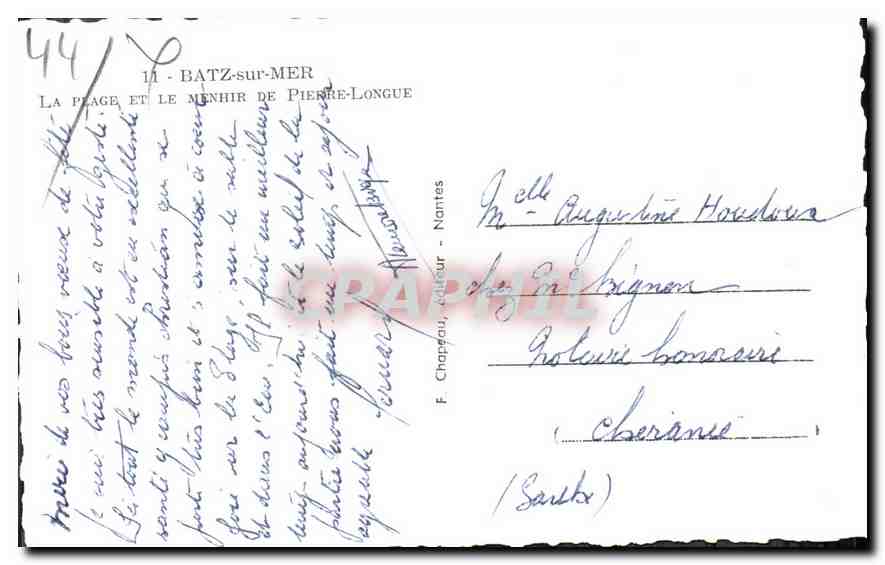 44
11 - BATZ-sur-MER
LA PLAGE ET LE MENHIR DE PIERRE-LONGUE
Merci de vos bons vœux de fête
Je suis très sensible à votre geste.
Ici tout le monde est en excellente
santé y compris Christian qui se
porte très bien et s'amuse à cœur
joie sur la plage, sur le sable
et dans l'eau. Il fait un meilleur
temps aujourd'hui le soleil de la
partie nous fait un temps et séjour
agréable
F. Chapeau, éditeur - Nantes
CPARHIL
Melle Augustine Houdoux
chez Me Bignon
Notaire honoraire
Cherancé
(Sarthe)